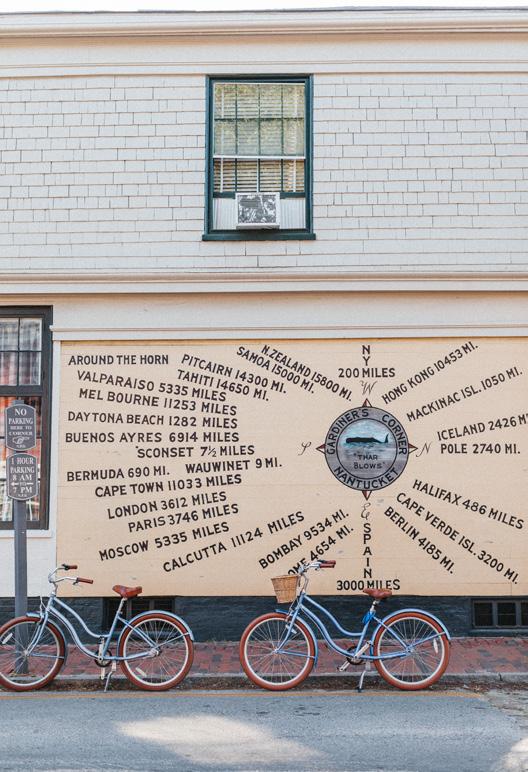 AROUND THE HORN
PITCAIRN 14300 MI.
TAHITI 14650 MI.
VALPARAISO 5335 MILES
MELBOURNE 11253 MILES
DAYTONA BEACH 1282 MILES
BUENOS AYRES 6914 MILES
'SCONSET 7½ MILES
BERMUDA 690 MI.
WAUWINET 9 MI.
CAPE TOWN 11033 MILES
LONDON 3612 MILES
PARIS 3746 MILES
MOSCOW 5335 MILES
CALCUTTA 11124 MILES
BOMBAY 9534 MI.
4654 MI.
SAMOA 15000 MI.
N.ZEALAND 15800 MI.
NY
200 MILES
W
HONG KONG 10453 MI.
MACKINAC ISL. 1050 MI.
ICELAND 2426 MI
POLE 2740 MI.
N
S
GARDINER'S CORNER
"THAR
BLOWS"
NANTUCKET
E
SPAIN
3000 MILES
HALIFAX 486 MILES
CAPE VERDE ISL. 3200 MI.
BERLIN 4185 MI.
NO
PARKING
HERE TO
CORNER
1 HOUR
PARKING
8 AM
TO
7 PM